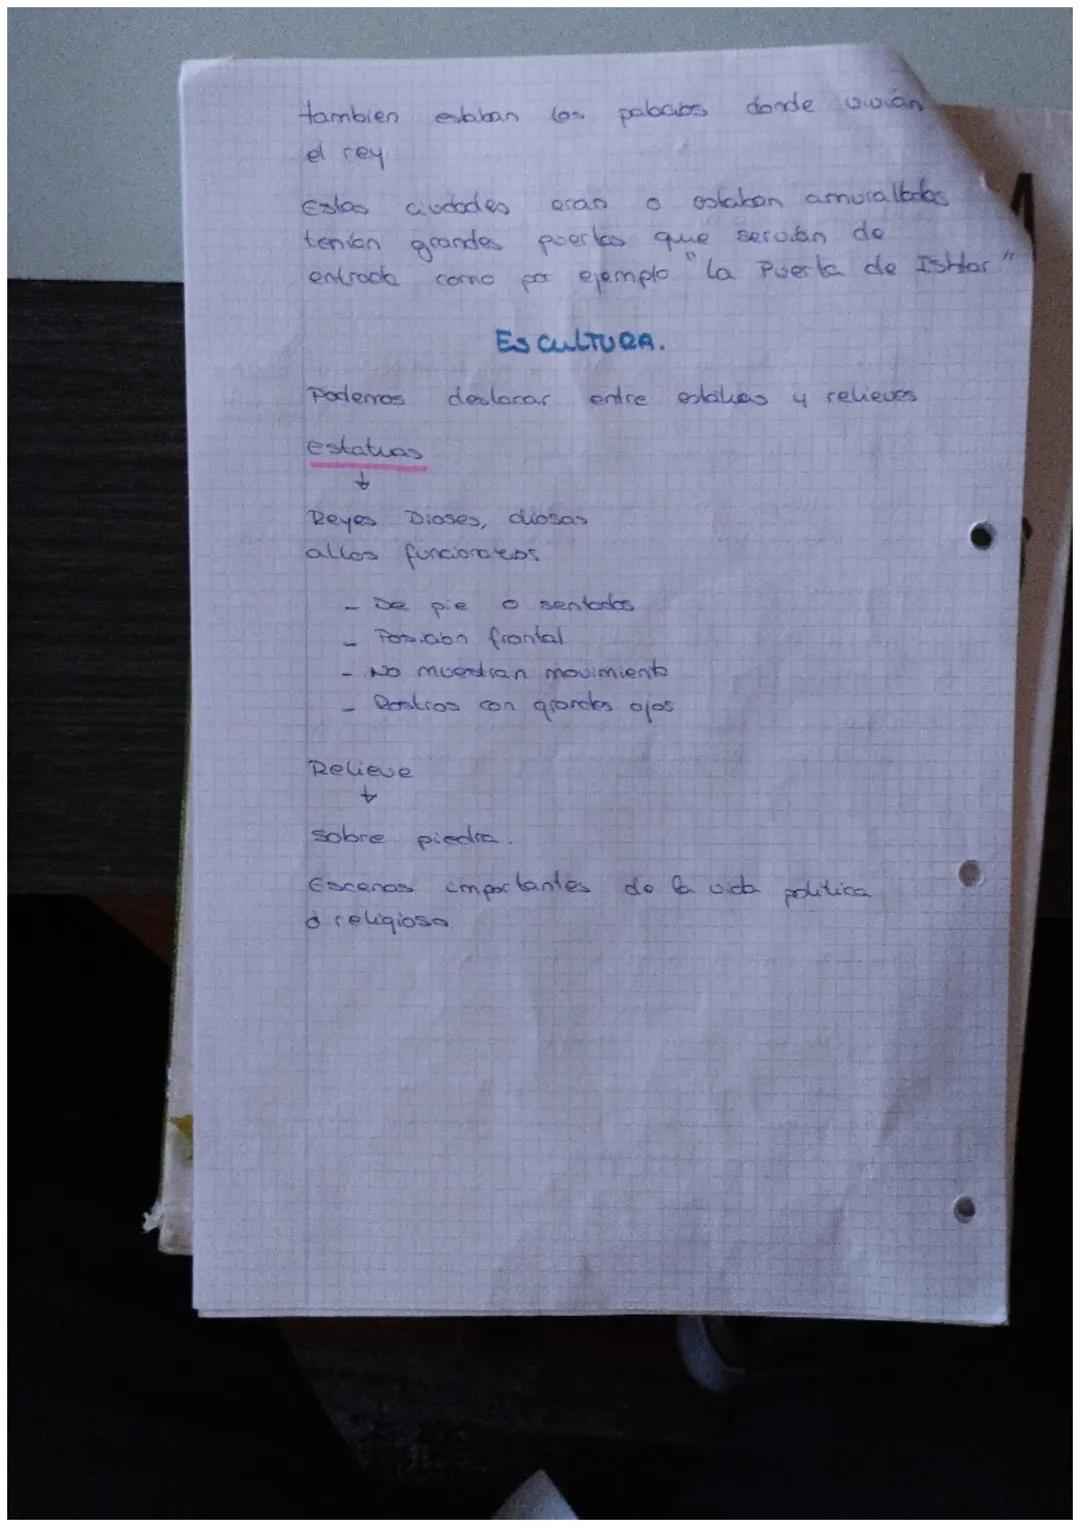 tambien estaban los palacios donde vivian
el rey
Estas ciudades eran o estaban amuralladas
tenian grandes puertas que servian de
entrada como por ejemplo "La Puerta de Ishtar"
ESCULTURA.
Podemos destacar entre estatuas y relieves
Estatuas
↓
Reyes Dioses, diosas
altos funcionarios
- De pie o sentados
- Posicion frontal
- No muestran movimiento
- Rostros con grandes ojos
Relieve
↓
Sobre piedra.
Escenas importantes de la vida politica
o religiosa